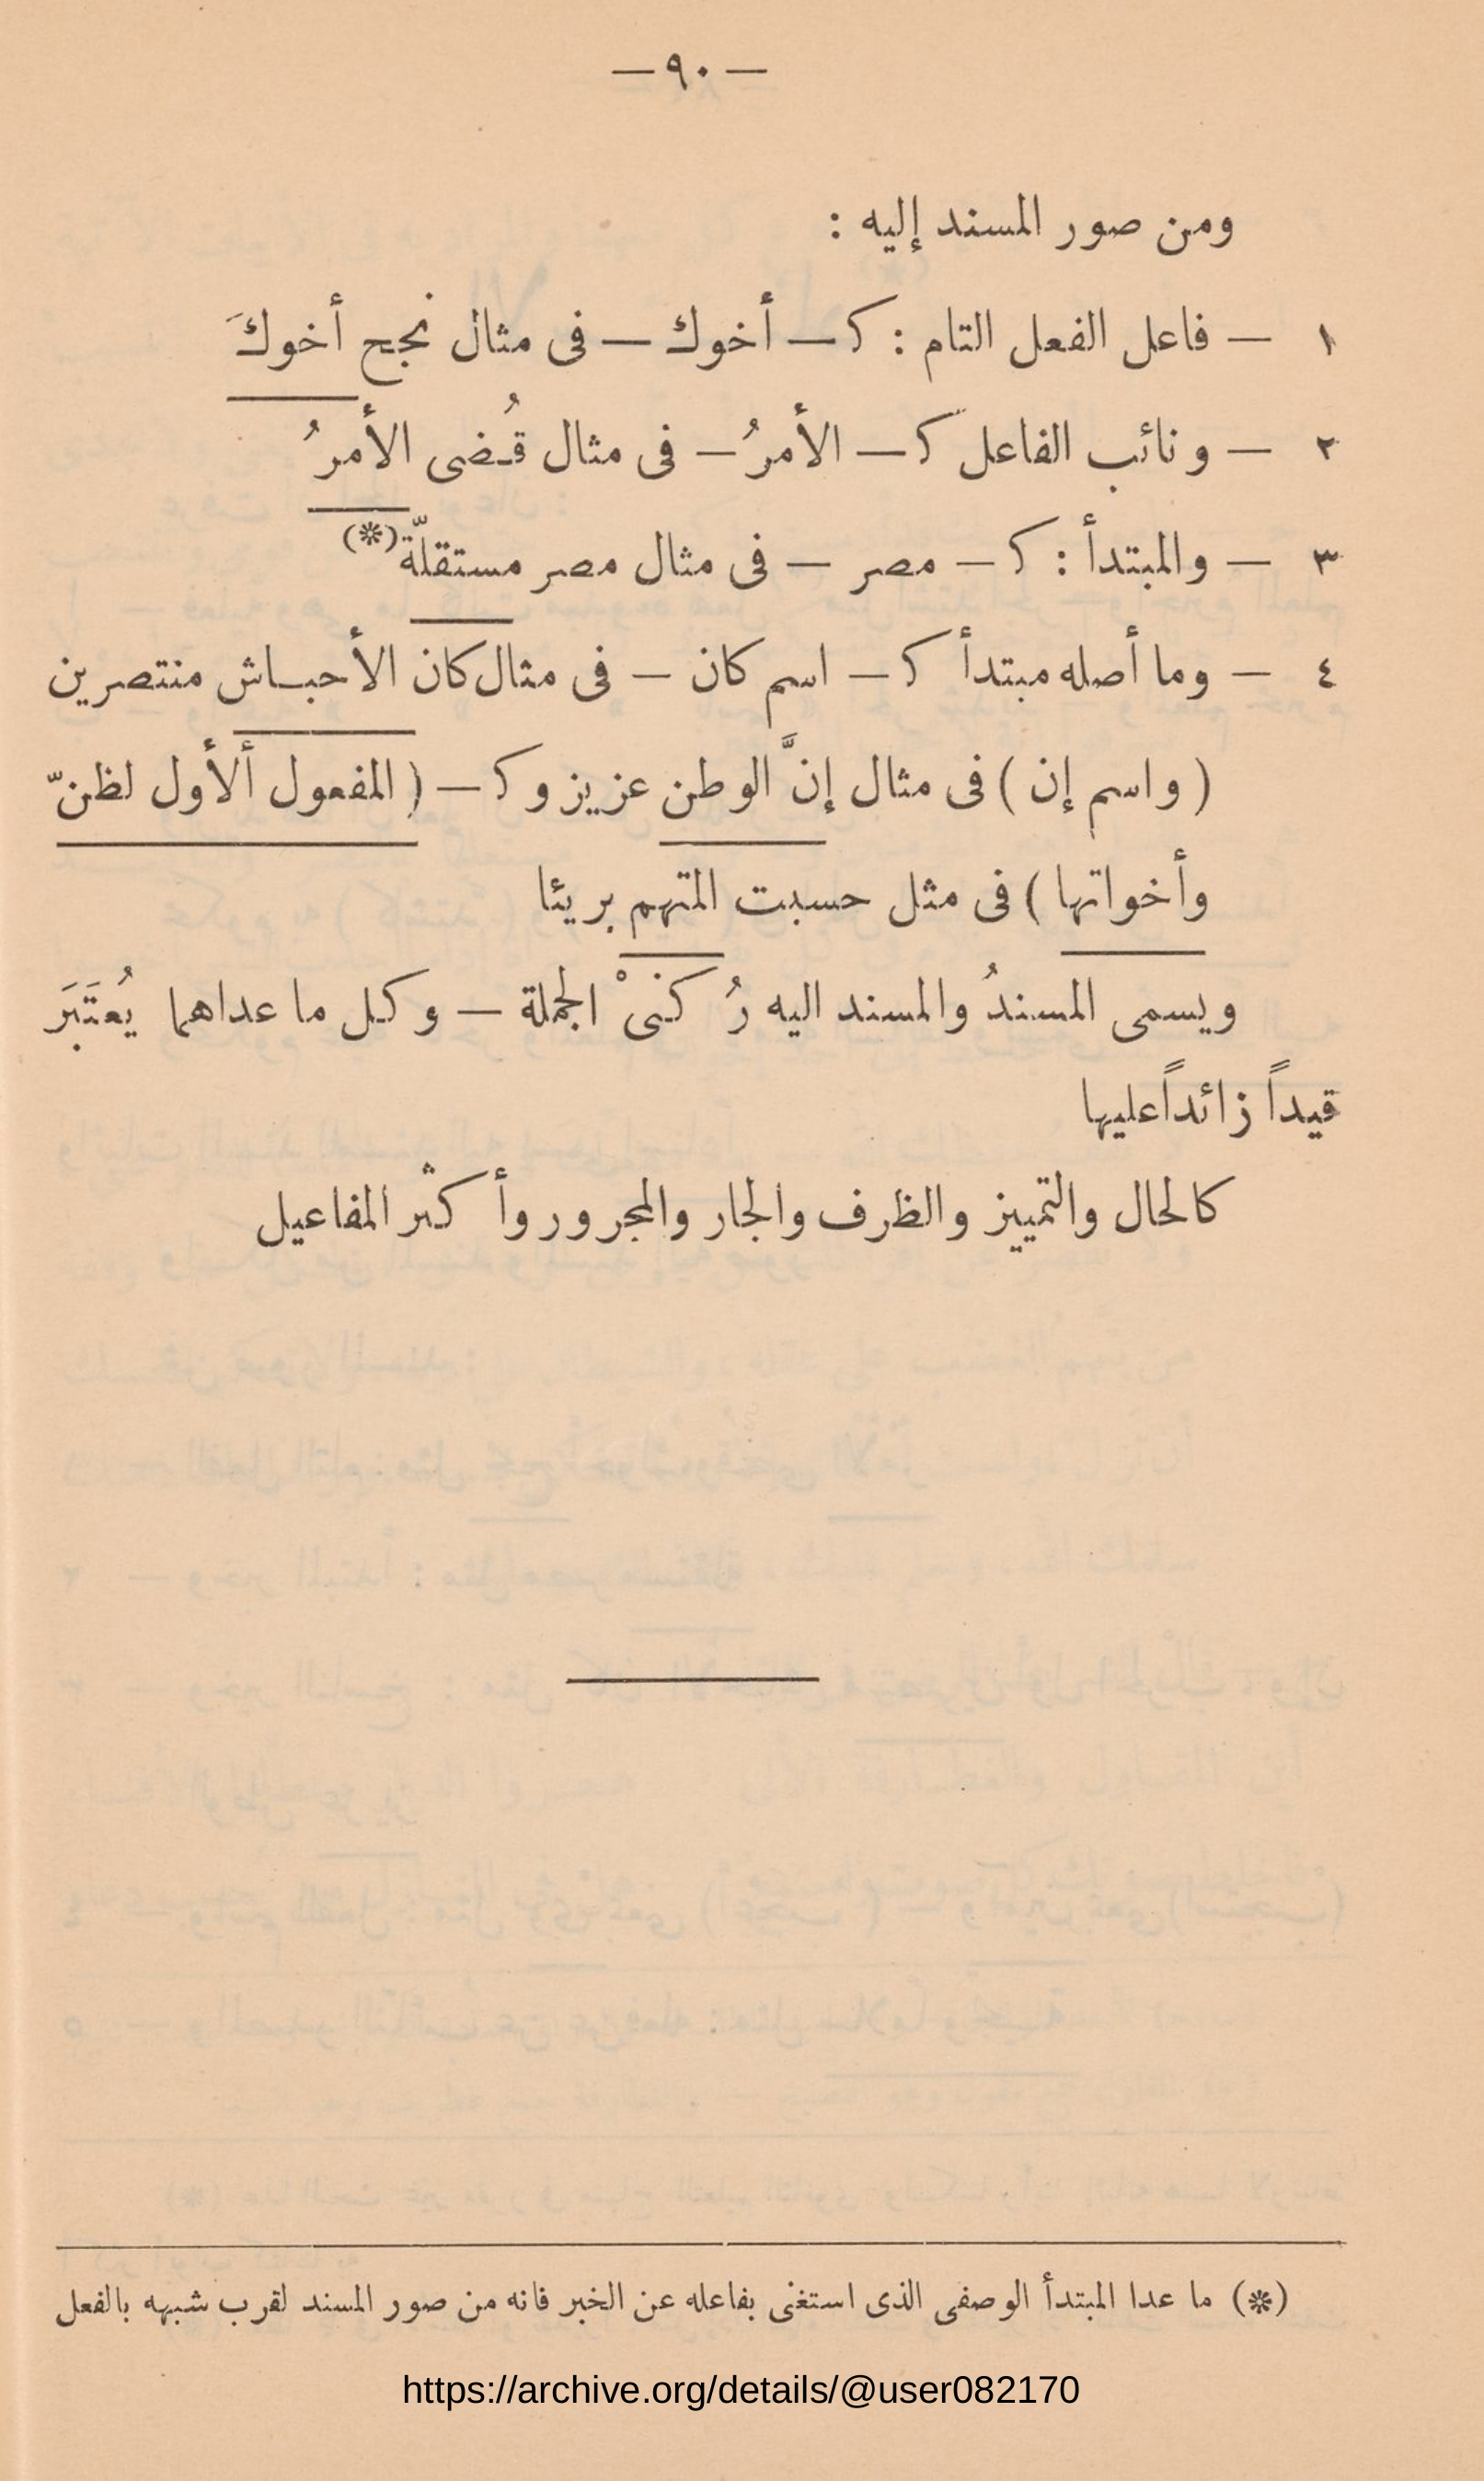 — ٩٠ —
ومن صور المسند إليه :
١ — فاعل الفعل التام : كـ — أخوك — فى مثال نجح أخوكَ
٢ — ونائب الفاعل كـ — الأمرُ — فى مثال قُضى الأمرُ
٣ — والمبتدأ : كـ — مصر — فى مثال مصر مستقلّة (*)
٤ — وما أصله مبتدأ كـ — اسم كان — فى مثال كان الأحباش منتصرين
( واسم إن ) فى مثال إنَّ الوطن عزيز و كـ — ( المفعول ألأول لظنّ
وأخواتها ) فى مثل حسبت المتهم بريئا
ويسمى المسندُ والمسند اليه رُكنىْ الجملة — وكل ما عداهما يُعتَبَر
قيداً زائداً عليها
كالحال والتمييز والظرف والجار والمجرور وأكثر المفاعيل
(*) ما عدا المبتدأ الوصفى الذى استغنى بفاعله عن الخبر فانه من صور المسند لقرب شبهه بالفعل
https://archive.org/details/@user082170